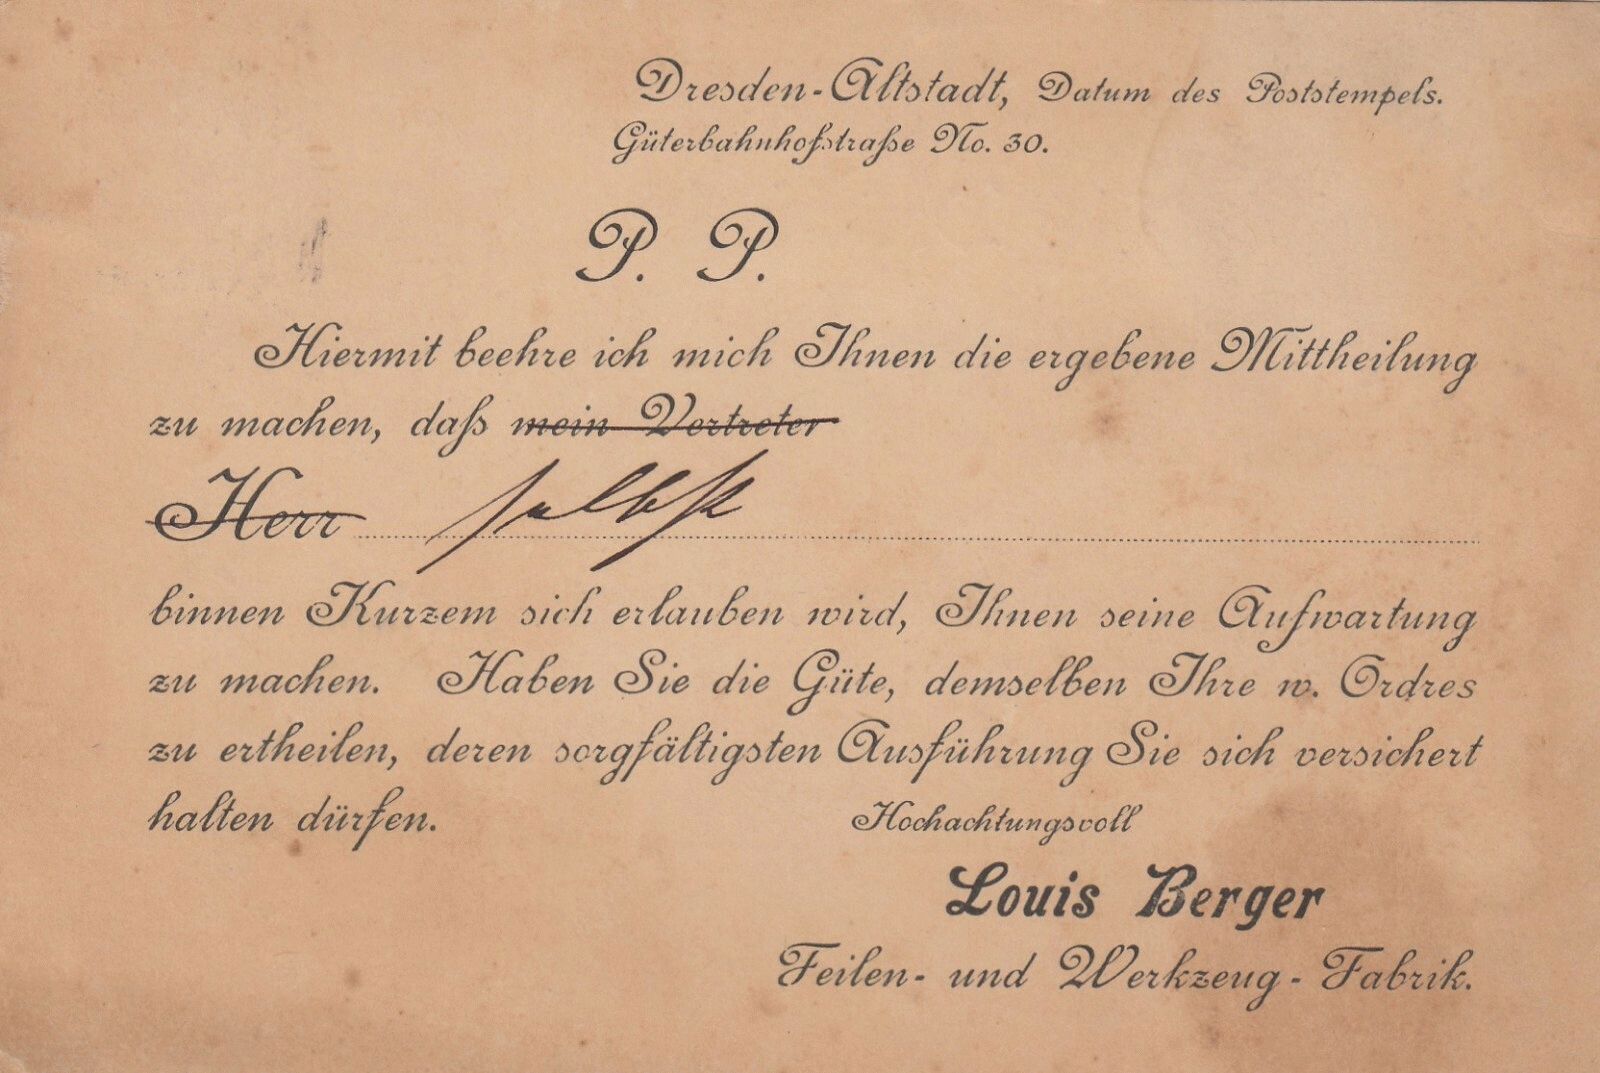 Dresden-Altstadt, Datum des Poststempels.
Güterbahnhofstraße No. 30.
P. P.
Hiermit beehre ich mich Ihnen die ergebene Mittheilung
zu machen, daß mein Vertreter
Herr selbst
binnen Kurzem sich erlauben wird, Ihnen seine Aufwartung
zu machen. Haben Sie die Güte, demselben Ihre w. Ordres
zu ertheilen, deren sorgfältigsten Ausführung Sie sich versichert
halten dürfen.
Hochachtungsvoll
Louis Berger
Feilen- und Werkzeug-Fabrik.